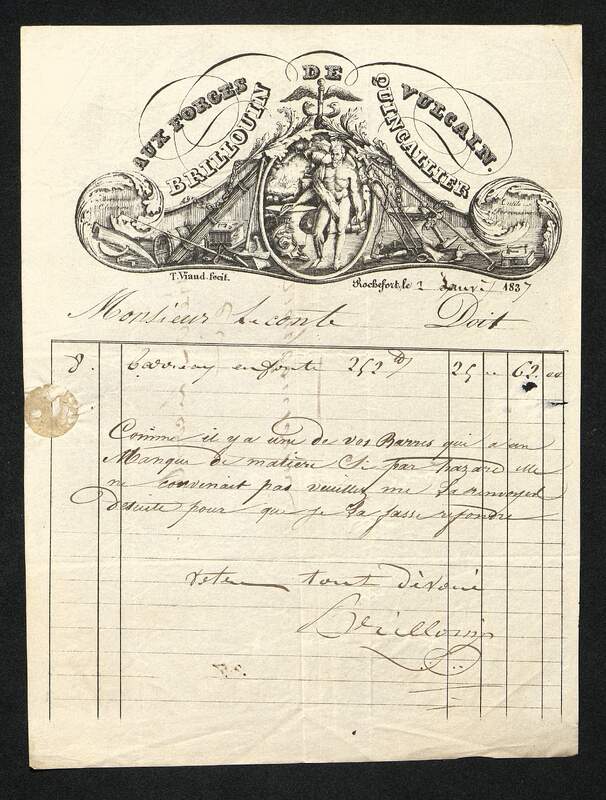 AUX FORGES DE VULCAIN.
BRILLOUIN QUINCALLIER
T. Viaud. fecit.
Rochefort, le 2 Janvr 1837
Monsieur Leconte Doit
8. Barreau en fonte 252 25 " 62.
Comme il y a une de vos Barres qui a un
Manque de matière Si par hazard elle
ne convenait pas veuillez me La renvoyer
desuite pour que je La fasse refondre
votre tout dévoué
Brillouin